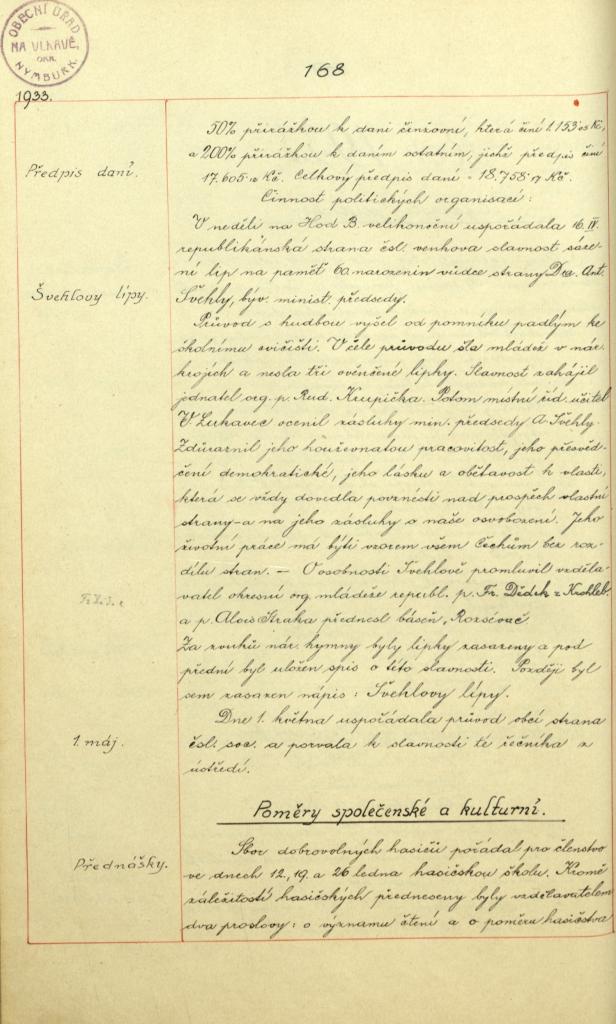 OBECNÍ ÚŘAD
NA VLKAVĚ,
OKR.
NYMBURK.
168
1933.
50% přirážkou k dani činžovní, která činí 1.153·05 Kč,
a 200% přirážkou k daním ostatním, jichž předpis činí
Předpis daní.
17.605·12 Kč. Celkový předpis daní = 18.758·17 Kč.
Činnost politických organisací:
V neděli na Hod B. velikonoční uspořádala 16. IV.
republikánská strana čsl. venkova slavnost sáze-
ní lip na paměť 60. narozenin vůdce strany Dra. Ant.
Švehlovy lípy.
Švehly, býv. minist. předsedy.
Průvod s hudbou vyšel od pomníku padlým ke
školnímu cvičišti. V čele průvodu šla mládež v nár.
krojích a nesla tři ověnčené lipky. Slavnost zahájil
jednatel org. p. Rud. Krupička. Potom místní říd. učitel
V. Lukavec ocenil zásluhy min. předsedy A. Švehly.
Zdůraznil jeho houževnatou pracovitost, jeho přesvěd-
čení demokratické, jeho lásku a obětavost k vlasti,
která se vždy dovedla povznésti nad prospěch vlastní
strany-a na jeho zásluhy o naše osvobození. Jeho
životní práce má býti vzorem všem Čechům bez roz-
dílu stran. — O osobnosti Švehlově promluvil vzděla-
vatel okresní org. mládeže republ. p. Fr. Dědek z
a p. Alois Straka přednesl báseň „Rozsévač".
Za zvuků nár. hymny byly lipky zasazeny a pod
přední byl uložen spis o této slavnosti. Později byl
sem zasazen nápis: Švehlovy lípy.
Dne 1. května uspořádala průvod obcí strana
1. máj.
čsl. soc. a pozvala k slavnosti té řečníka z
ústředí.
Poměry společenské a kulturní.
Sbor dobrovolných hasičů pořádal pro členstvo
Přednášky.
ve dnech 12, 19. a 26 ledna hasičskou školu. Kromě
záležitostí hasičských předneseny byly vzdělavatelem
dva proslovy: o významu čtení a o poměru hasičstva